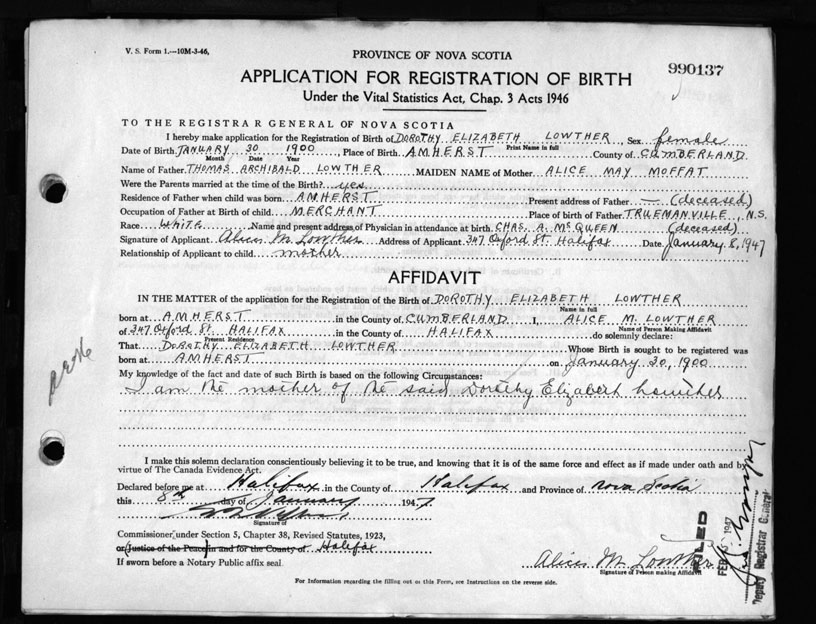 V. S. Form 1.—10M-3-46,
PROVINCE OF NOVA SCOTIA
990137
APPLICATION FOR REGISTRATION OF BIRTH
Under the Vital Statistics Act, Chap. 3 Acts 1946
TO THE REGISTRAR GENERAL OF NOVA SCOTIA
I hereby make application for the Registration of Birth of DOROTHY ELIZABETH LOWTHER, Sex female
Print Name in full
Date of Birth JANUARY 30 1900, Place of Birth AMHERST County of CUMBERLAND
Month Date Year
Name of Father THOMAS ARCHIBALD LOWTHER MAIDEN NAME of Mother ALICE MAY MOFFAT
Were the Parents married at the time of the Birth? yes
Residence of Father when child was born AMHERST Present address of Father — (deceased)
Occupation of Father at Birth of child MERCHANT Place of birth of Father TRUEMANVILLE, N.S.
Race White Name and present address of Physician in attendance at birth CHAS. A. McQUEEN (deceased)
Signature of Applicant Alice M. Lowther Address of Applicant 347 Oxford St. Halifax Date January 8, 1947
Relationship of Applicant to child mother
AFFIDAVIT
IN THE MATTER of the application for the Registration of the Birth of DOROTHY ELIZABETH LOWTHER
Name in full
born at AMHERST in the County of CUMBERLAND I, ALICE M. LOWTHER
Name of Person Making Affidavit
of 347 Oxford St. HALIFAX in the County of HALIFAX do solemnly declare:
Present Residence
That DOROTHY ELIZABETH LOWTHER Whose Birth is sought to be registered was
born at AMHERST on January 30, 1900
My knowledge of the fact and date of such Birth is based on the following Circumstances:
I am the mother of the said Dorothy Elizabeth Lowther
I make this solemn declaration conscientiously believing it to be true, and knowing that it is of the same force and effect as if made under oath and by
virtue of The Canada Evidence Act.
Declared before me at Halifax in the County of Halifax and Province of Nova Scotia
this 8th day of January 1947
Signature of
Commissioner under Section 5, Chapter 38, Revised Statutes, 1923,
or (Justice of the Peace) in and for the County of Halifax
If sworn before a Notary Public affix seal.
Alice M. Lowther
Signature of Person making Affidavit
For Information regarding the filling out of this Form, see Instructions on the reverse side.
FILED
FEB 1947
Deputy Registrar General